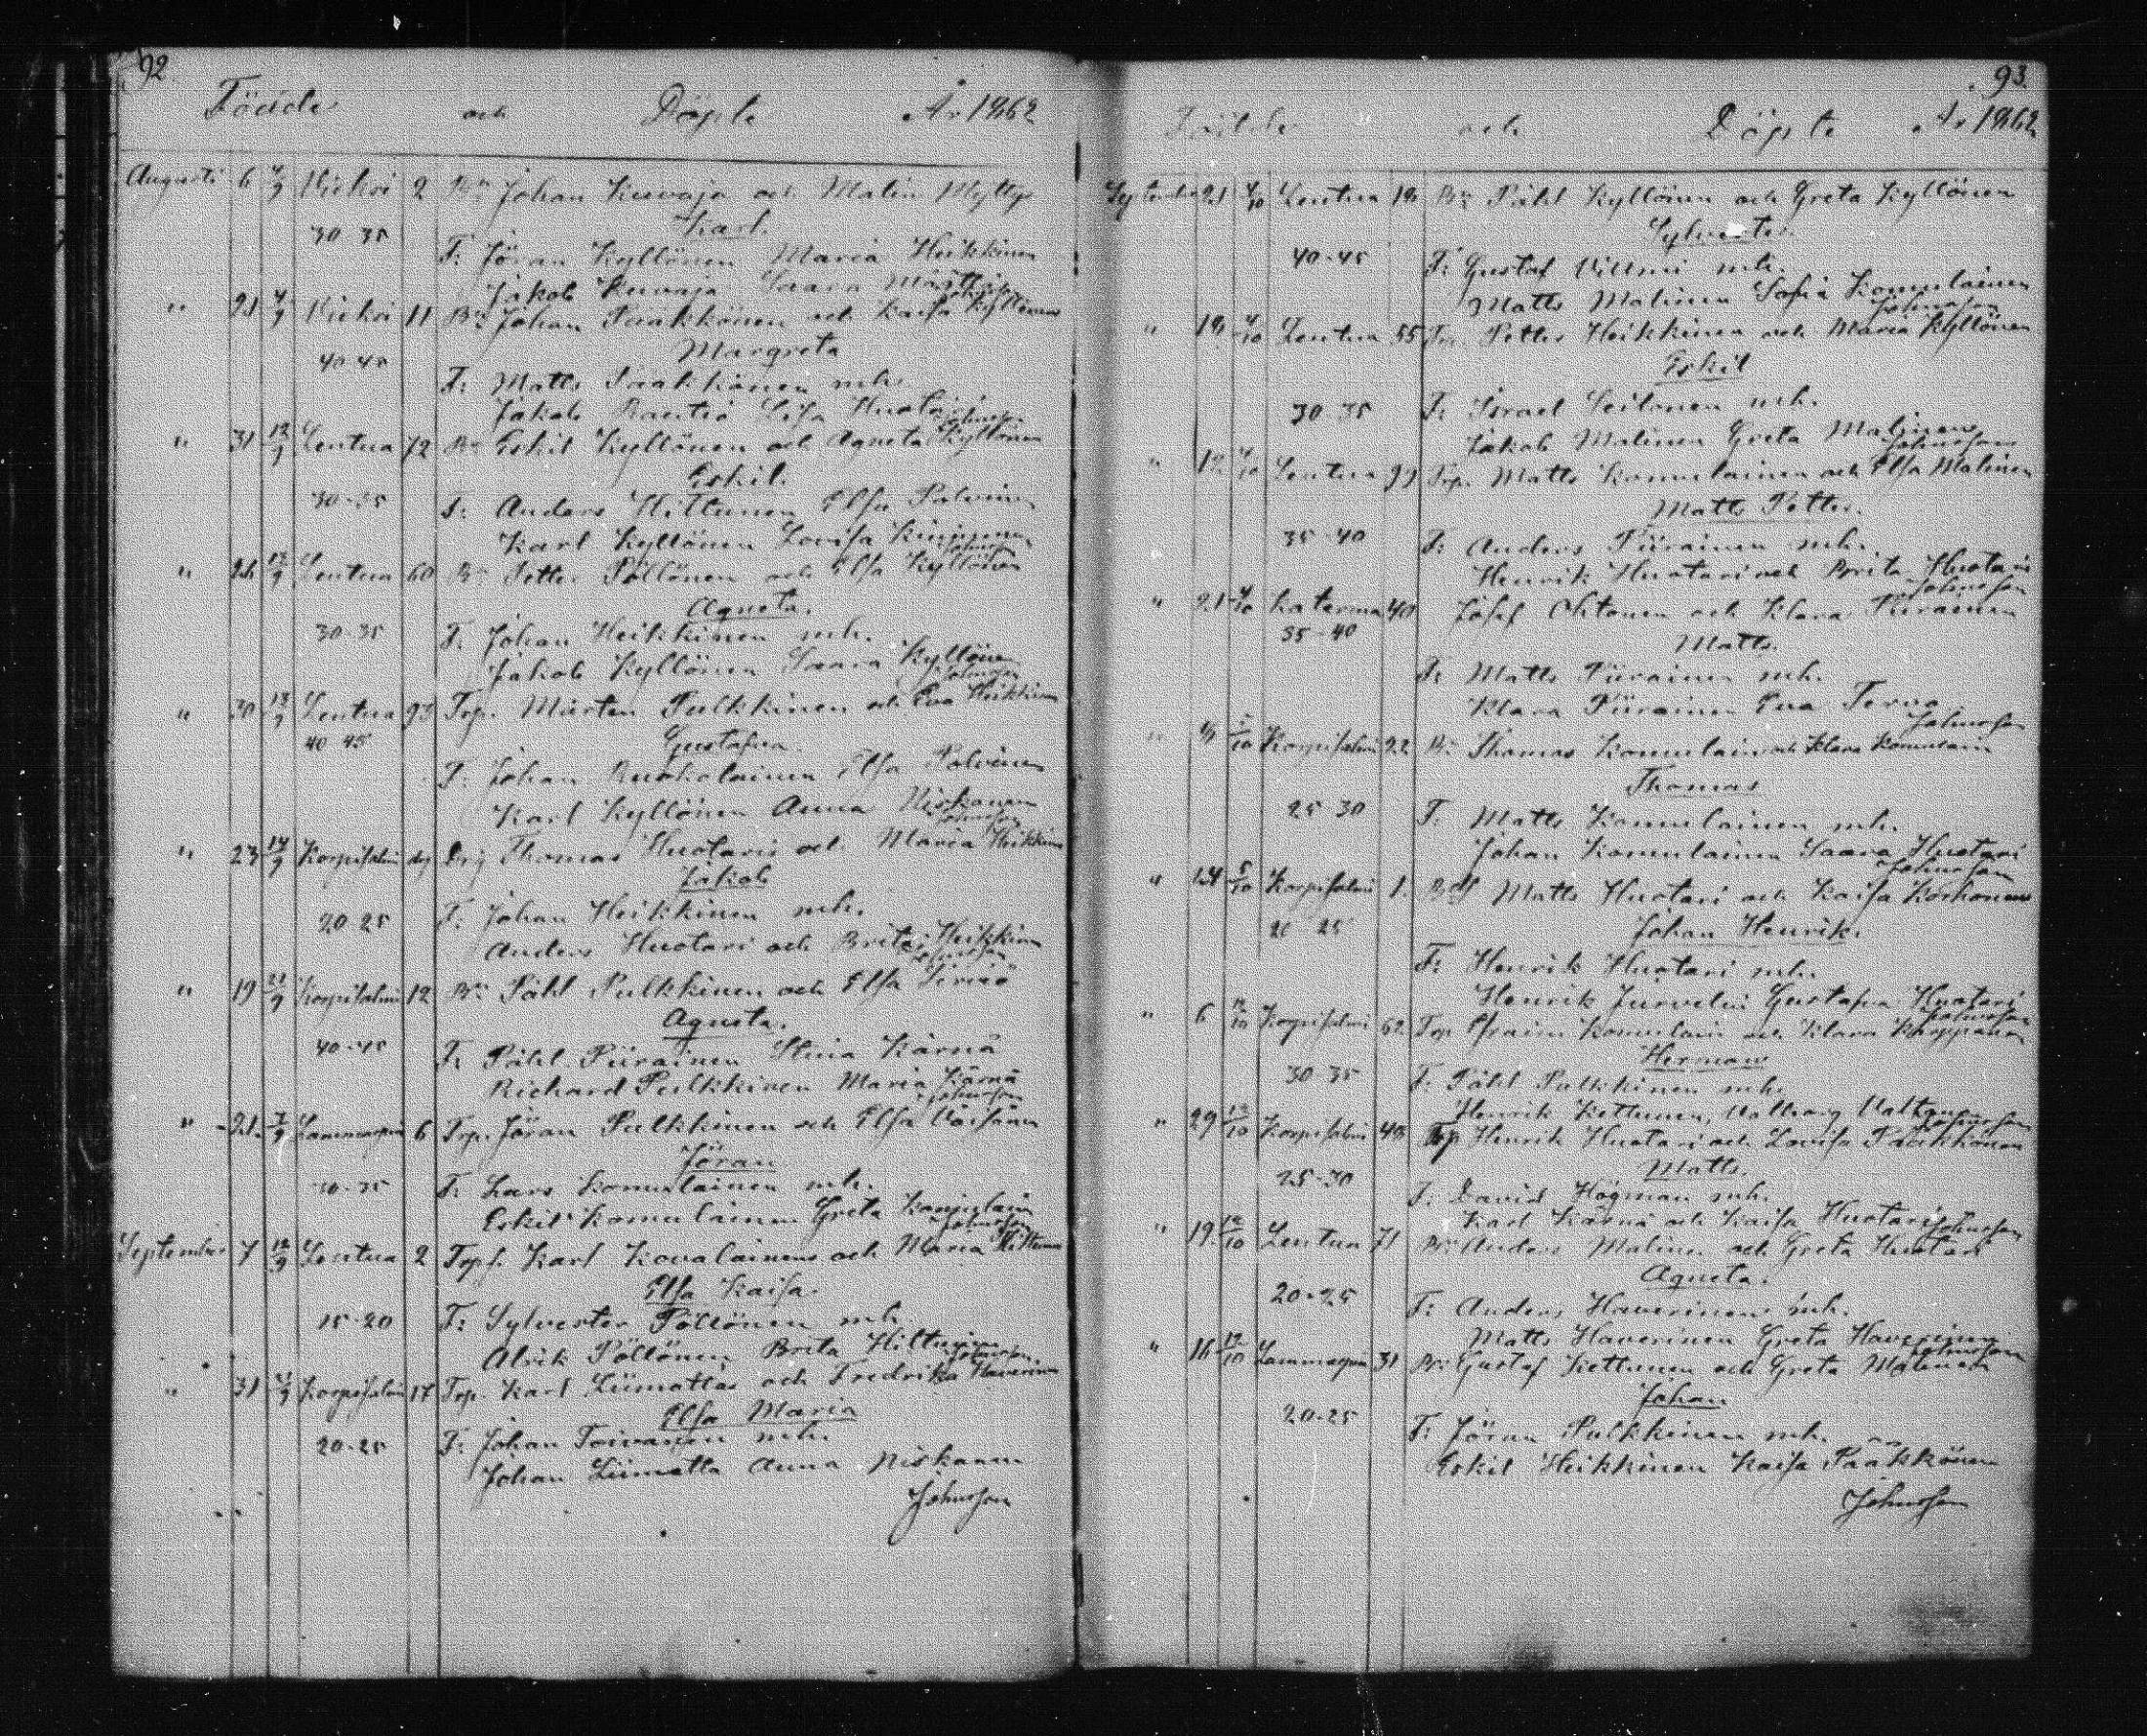 92
Födde och Döpte År 1862
Augusti 6 7/9 Viekei 2 Bn Johan Kuvaja och Malin Mylly
Karl.
30-35 F: Jöran Kyllönen Maria Heikkinen
Jakob Kuvaja Saara
Johnsson
" 21 7/9 Viekei 11 Bn Johan Pääkkönen och Kaisa Kyllönen
Margreta
40-45 F: Matts Pääkkönen mh.
Jakob Rautio Lisa Huotari
Johnsson
" 31 12/9 Lentua 72 Bn Eskil Kyllönen och Agneta Kyllönen
Eskil.
30-35 F: Anders Hiltunen Elsa Polvinen
Karl Kyllönen Lovisa Kinnunen
Johnsson
" 12/9 Lentua 60 Bn Petter Pöllönen och Elsa Kyllönen
Agneta.
30-35 F: Johan Heikkinen mh.
Jakob Kyllönen Saara Kyllönen
Johnsson
" 30 13/9 Lentua 93 Trp. Mårten Pulkkinen och Eva Heikkinen
40 45 Gustafva.
F: Johan Ruokolainen Elsa Polvinen
Karl Kyllönen Anna Niskanen
Johnsson
" 23 14/9 Korpisalmi Drg Thomas Huotari och Maria Heikkinen
Jakob
20-25 F: Johan Heikkinen mh.
Anders Huotari och Brita Heikkinen
Johnsson
" 19 21/9 Korpisalmi 12 Bn Påhl Pulkkinen och Elsa Sirviö
Agneta.
40-45 F: Påhl Piirainen Stina Kärnä
Richard Pulkkinen Maria Kärnä
Johnsson
" 21. 7/9 Lammasperä 6 Trp. Jöran Pulkkinen och Elsa Väisänen
Jöran
30-35 F: Lars Komulainen mh.
Eskil Komulainen Greta Komulainen
Johnsson
September 7 12/9 Lentua 2 Torp. Karl Kovalainen och Maria Hiltunen
Elsa Kaisa.
15-20 F: Sylvester Pöllönen mh.
Alrik Pöllönen Brita Hiltunen
Johnsson
" 31 Korpisalmi 17 Trp. Karl Liimattas och Fredrika Haverinen
Elsa Maria
20-25 F: Johan Toivanen mh.
Johan Liimatta Anna Niskanen
Johnsson
93.
Födde och Döpte År 1862
September 21 Lentua 18 Bn Påhl Kyllönen och Greta Kyllönen
Sylvester.
40-45 F: Gustaf mh.
Matts Malinen Sofia Komulainen
Johnsson
" 18 Lentua 55 Trp. Petter Heikkinen och Maria Kyllönen
Eskil
30 35 F: Israel Seilonen mh.
Jakob Malinen Greta Malinen
Johnsson
" 12 Lentua 99 Trp. Matts Komulainen och Elsa Malinen
Matts Petter.
35-40 F: Anders Piirainen mh.
Henrik Huotari och Brita Huotari
Johnsson
" 21 Katerma 40 Josef Ohtonen och Klara Piirainen
35-40 Matts.
F: Matts Piirainen mh.
Klara Piirainen Eva Tervo
Johnsson
" 5/10 Korpisalmi 22 Bn Thomas Komulain och Klara Komulain
Thomas
25-30 F: Matts Komulainen mh.
Johan Komulainen Saara Huotari
Johnsson
" 24 5/10 Korpisalmi 1. Matts Huotari och Kaisa Korhonen
20 25 Johan Henrik.
F: Henrik Huotari mh.
Henrik Juvelin Gustafva Huotari
Johnsson
" 6 12/10 Korpisalmi 62 Trp. Efraim Komulain och Klara Karppinen
Herman
30-35 F: Påhl Pulkkinen mh.
Henrik Kettunen, Valborg
Johnsson
" 29 12/10 Korpisalmi 48 Trp Henrik Huotari och Lovisa Pääkkönen
Matts.
25-30 F: David Högman mh.
Karl Kärnä och Kaisa Huotari
Johnsson
" 19. 12/10 Lentua 71 Bn Anders Malinen och Greta Huotari
Agneta.
20-25 F: Anders Haverinen mh.
Matts Haverinen Greta Haverinen
Johnsson
" 16 19/10 Lammasperä 31 Bn Gustaf Kettunen och Greta Malinen
Johan
20-25 F: Jöran Pulkkinen mh.
Eskil Heikkinen Kaisa Pääkkönen
Johnsson